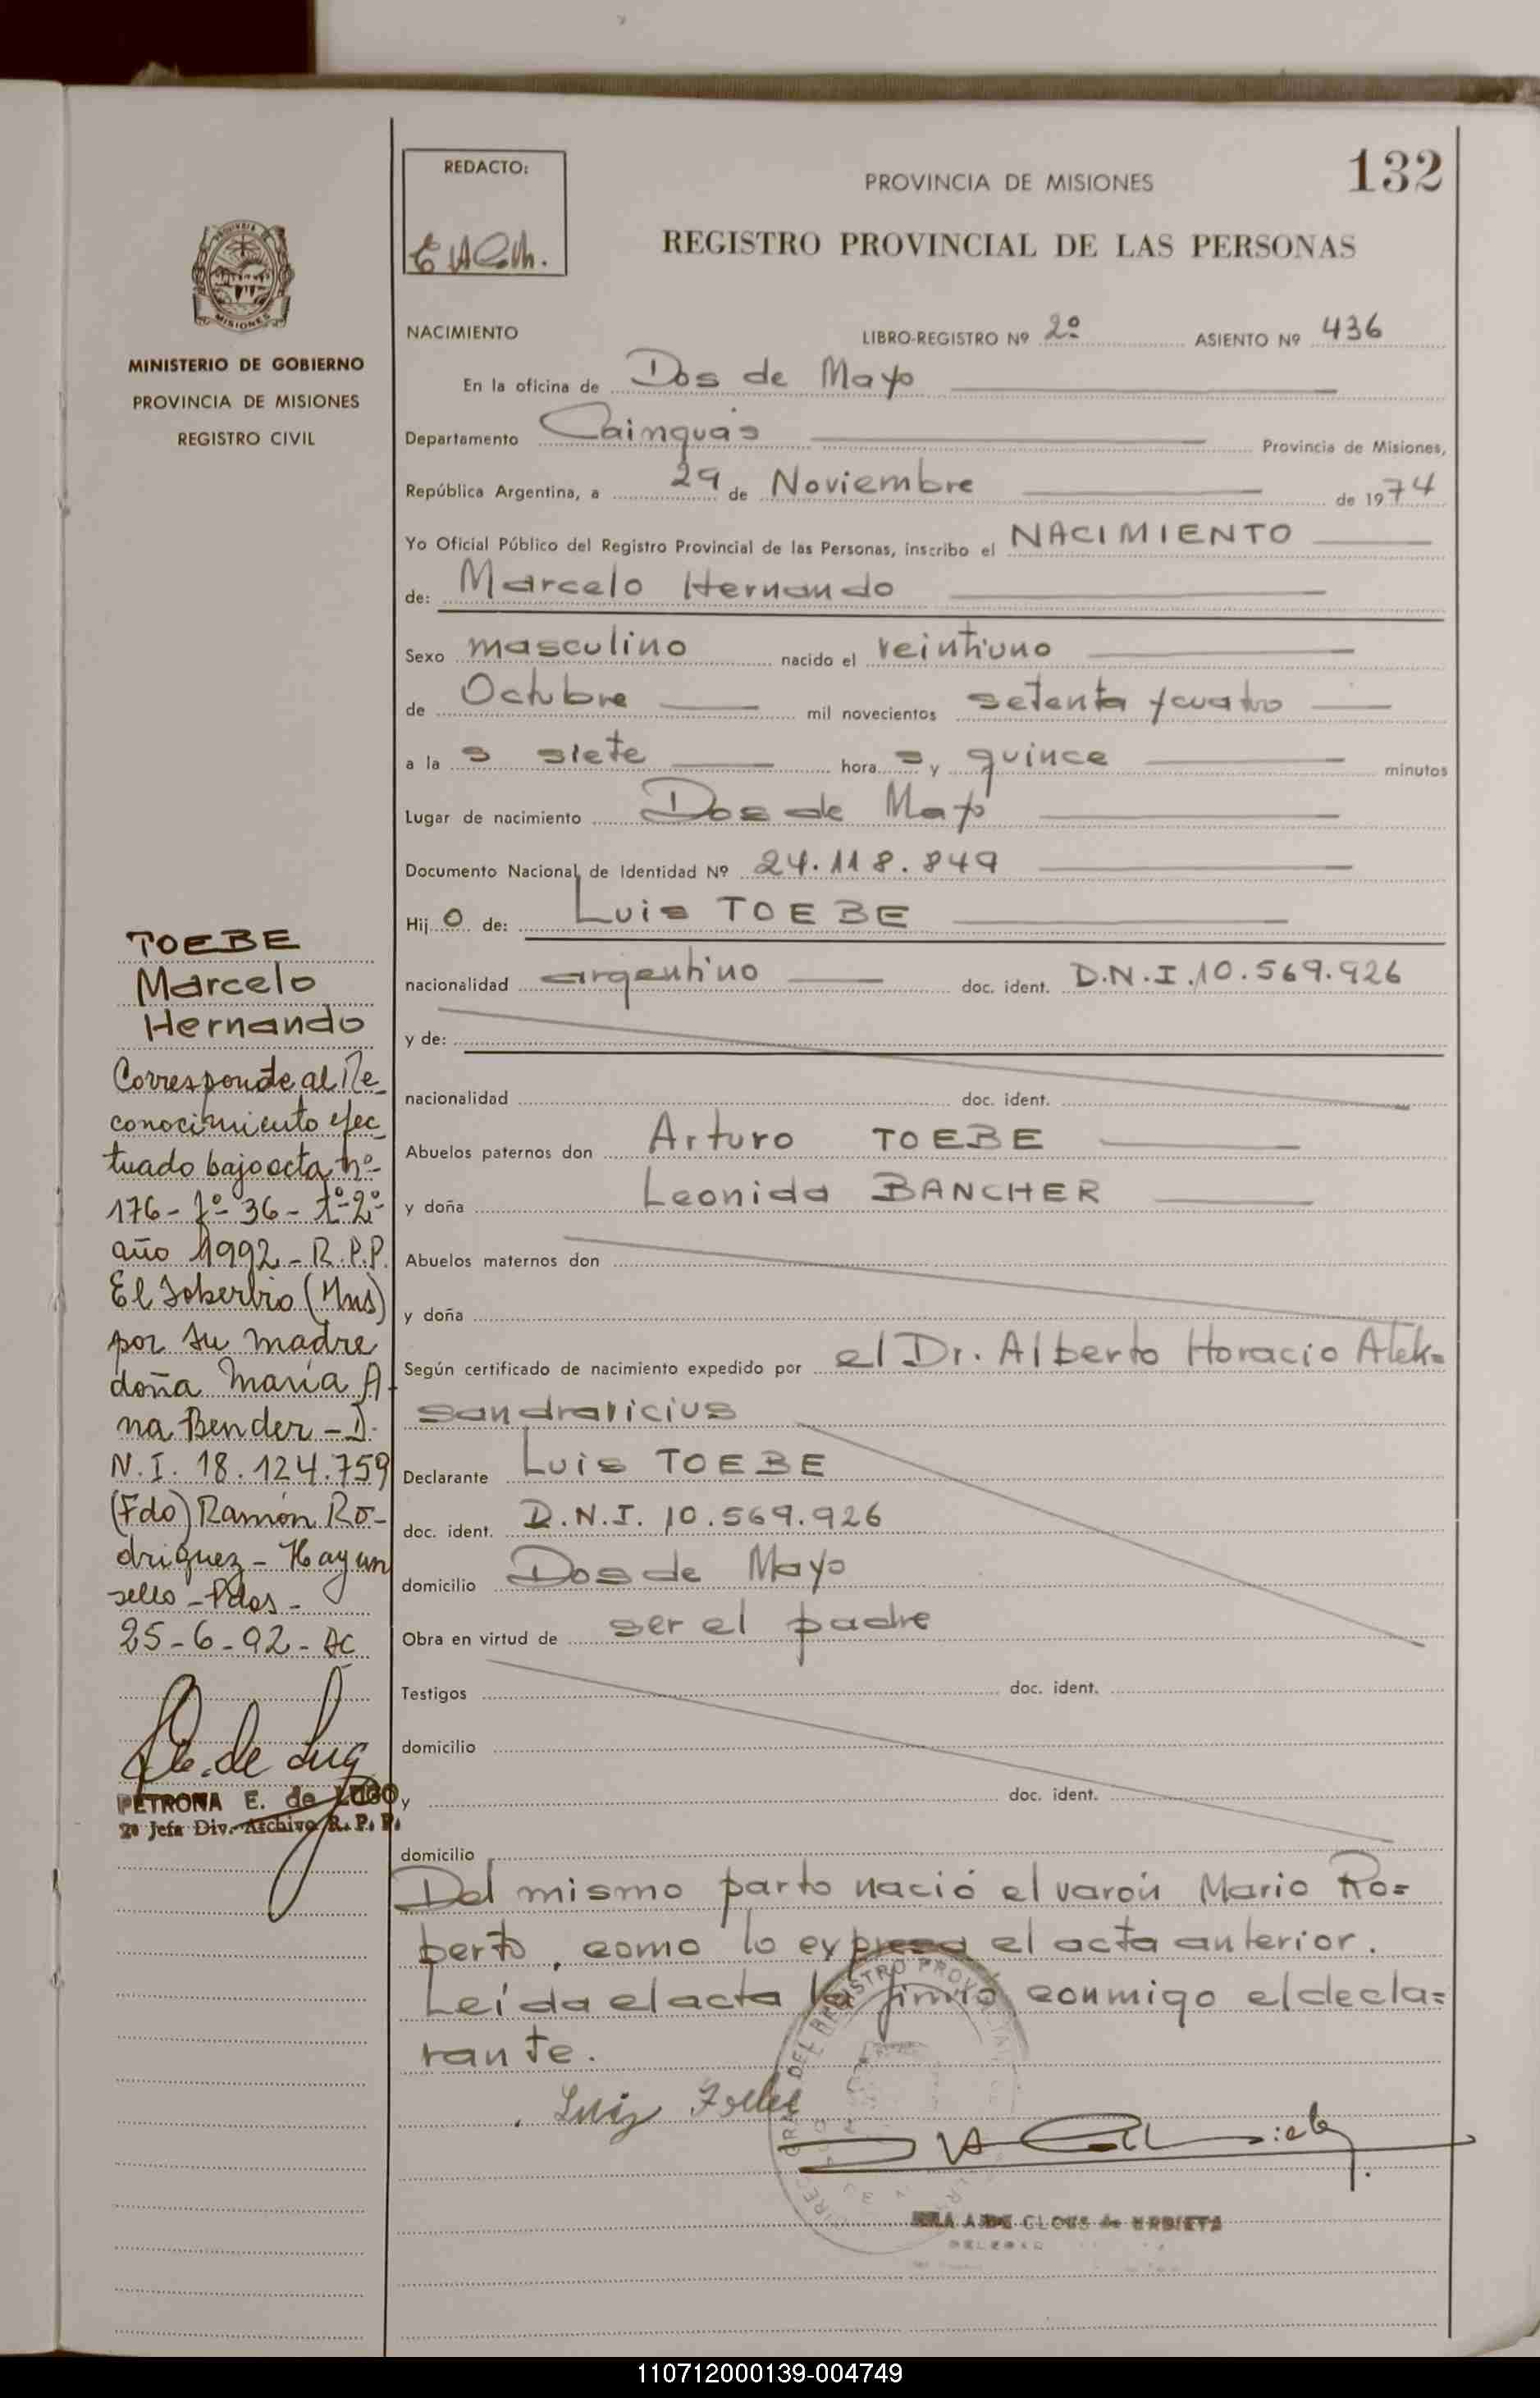 132
REDACTO:
PROVINCIA DE MISIONES
REGISTRO PROVINCIAL DE LAS PERSONAS
MISIONES
MINISTERIO DE GOBIERNO
PROVINCIA DE MISIONES
REGISTRO CIVIL
NACIMIENTO LIBRO-REGISTRO Nº 2º ASIENTO Nº 436
En la oficina de Dos de Mayo
Departamento Cainguás Provincia de Misiones,
República Argentina, a 29 de Noviembre de 1974
Yo Oficial Público del Registro Provincial de las Personas, inscribo el NACIMIENTO
de: Marcelo Hernando
Sexo masculino nacido el veintiuno
de Octubre mil novecientos setenta y cuatro
a la s siete hora s y quince minutos
Lugar de nacimiento Dos de Mayo
Documento Nacional de Identidad Nº 24.118.849
Hij o de: Luis TOEBE
nacionalidad argentino doc. ident. D.N.I. 10.569.926
y de:
nacionalidad doc. ident.
Abuelos paternos don Arturo TOEBE
y doña Leonida BANCHER
Abuelos maternos don
y doña
Según certificado de nacimiento expedido por el Dr. Alberto Horacio Alek=
sandravicius
Declarante Luis TOEBE
doc. ident. D.N.I. 10.569.926
domicilio Dos de Mayo
Obra en virtud de ser el padre
Testigos doc. ident.
domicilio
y doc. ident.
domicilio
Del mismo parto nació el varón Mario Ro=
berto, como lo expresa el acta anterior.
Leída el acta la firmó conmigo el decla=
rante.
TOEBE
Marcelo
Hernando
Corresponde al Re-
conocimiento efec
tuado bajo acta nº
176 - fº 36 - tº 2º
año 1992 - R.P.P.
El Soberbio (Mns)
por su madre
doña María A-
na Bender - D.
N.I. 18.124.759
(Fdo) Ramón Ro-
driguez - Hay un
sello - Pdas -
25-6-92 - AC
PETRONA E. de LUGO
2º Jefa Div. Archivo R. P. P.
110712000139-004749